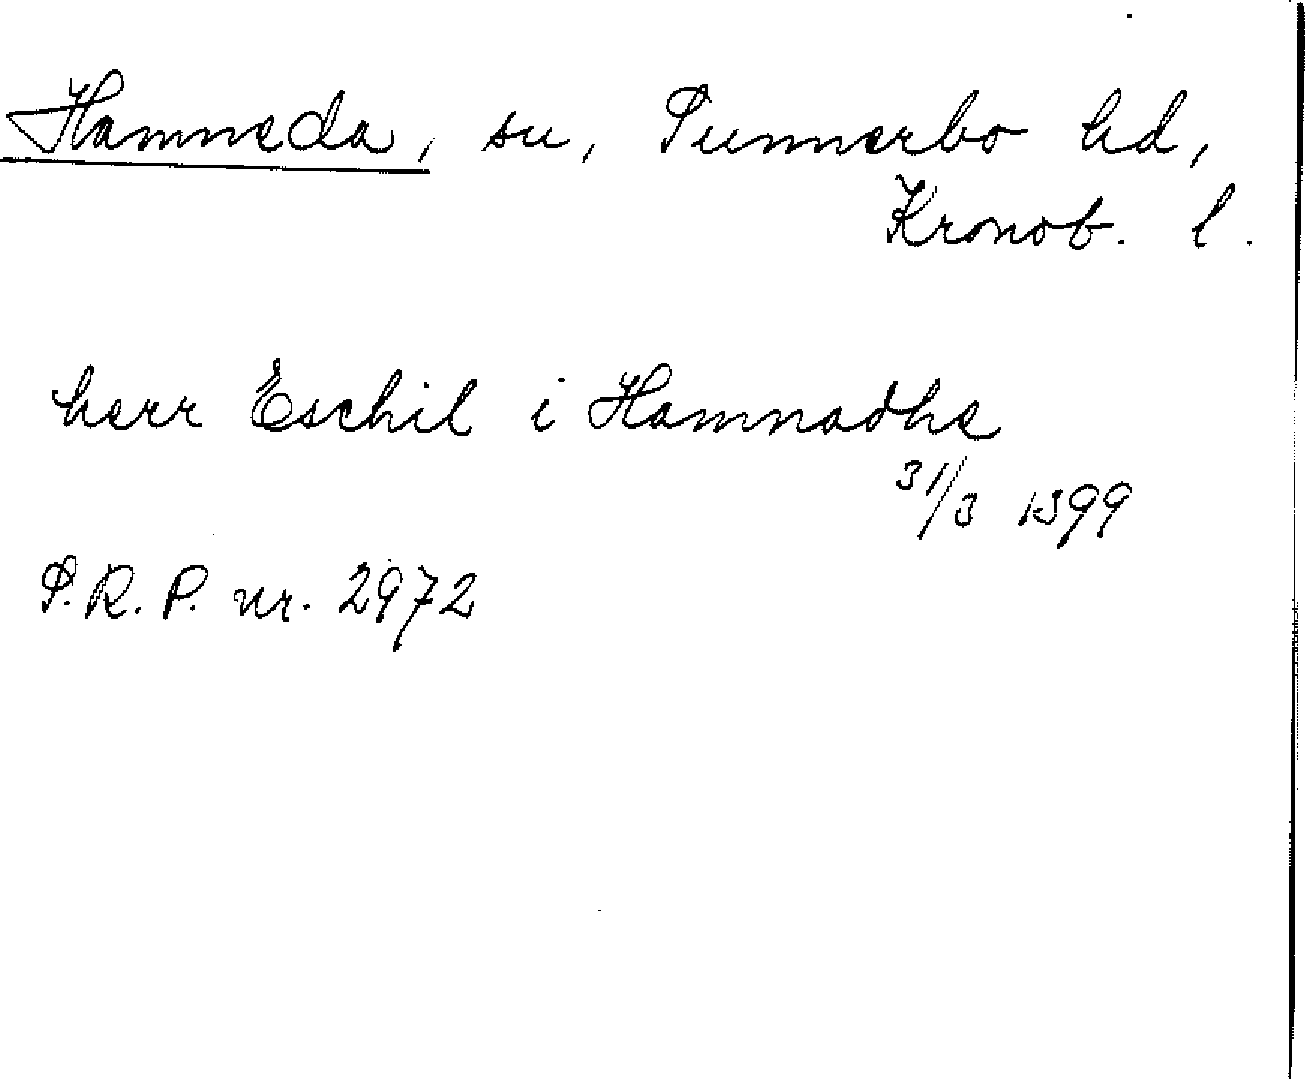 Hamneda, sn, Sunnerbo hd,
Kronob. l.
herr Eschil i Hamnadhe
31/3 1399
S.R.P. nr. 2972